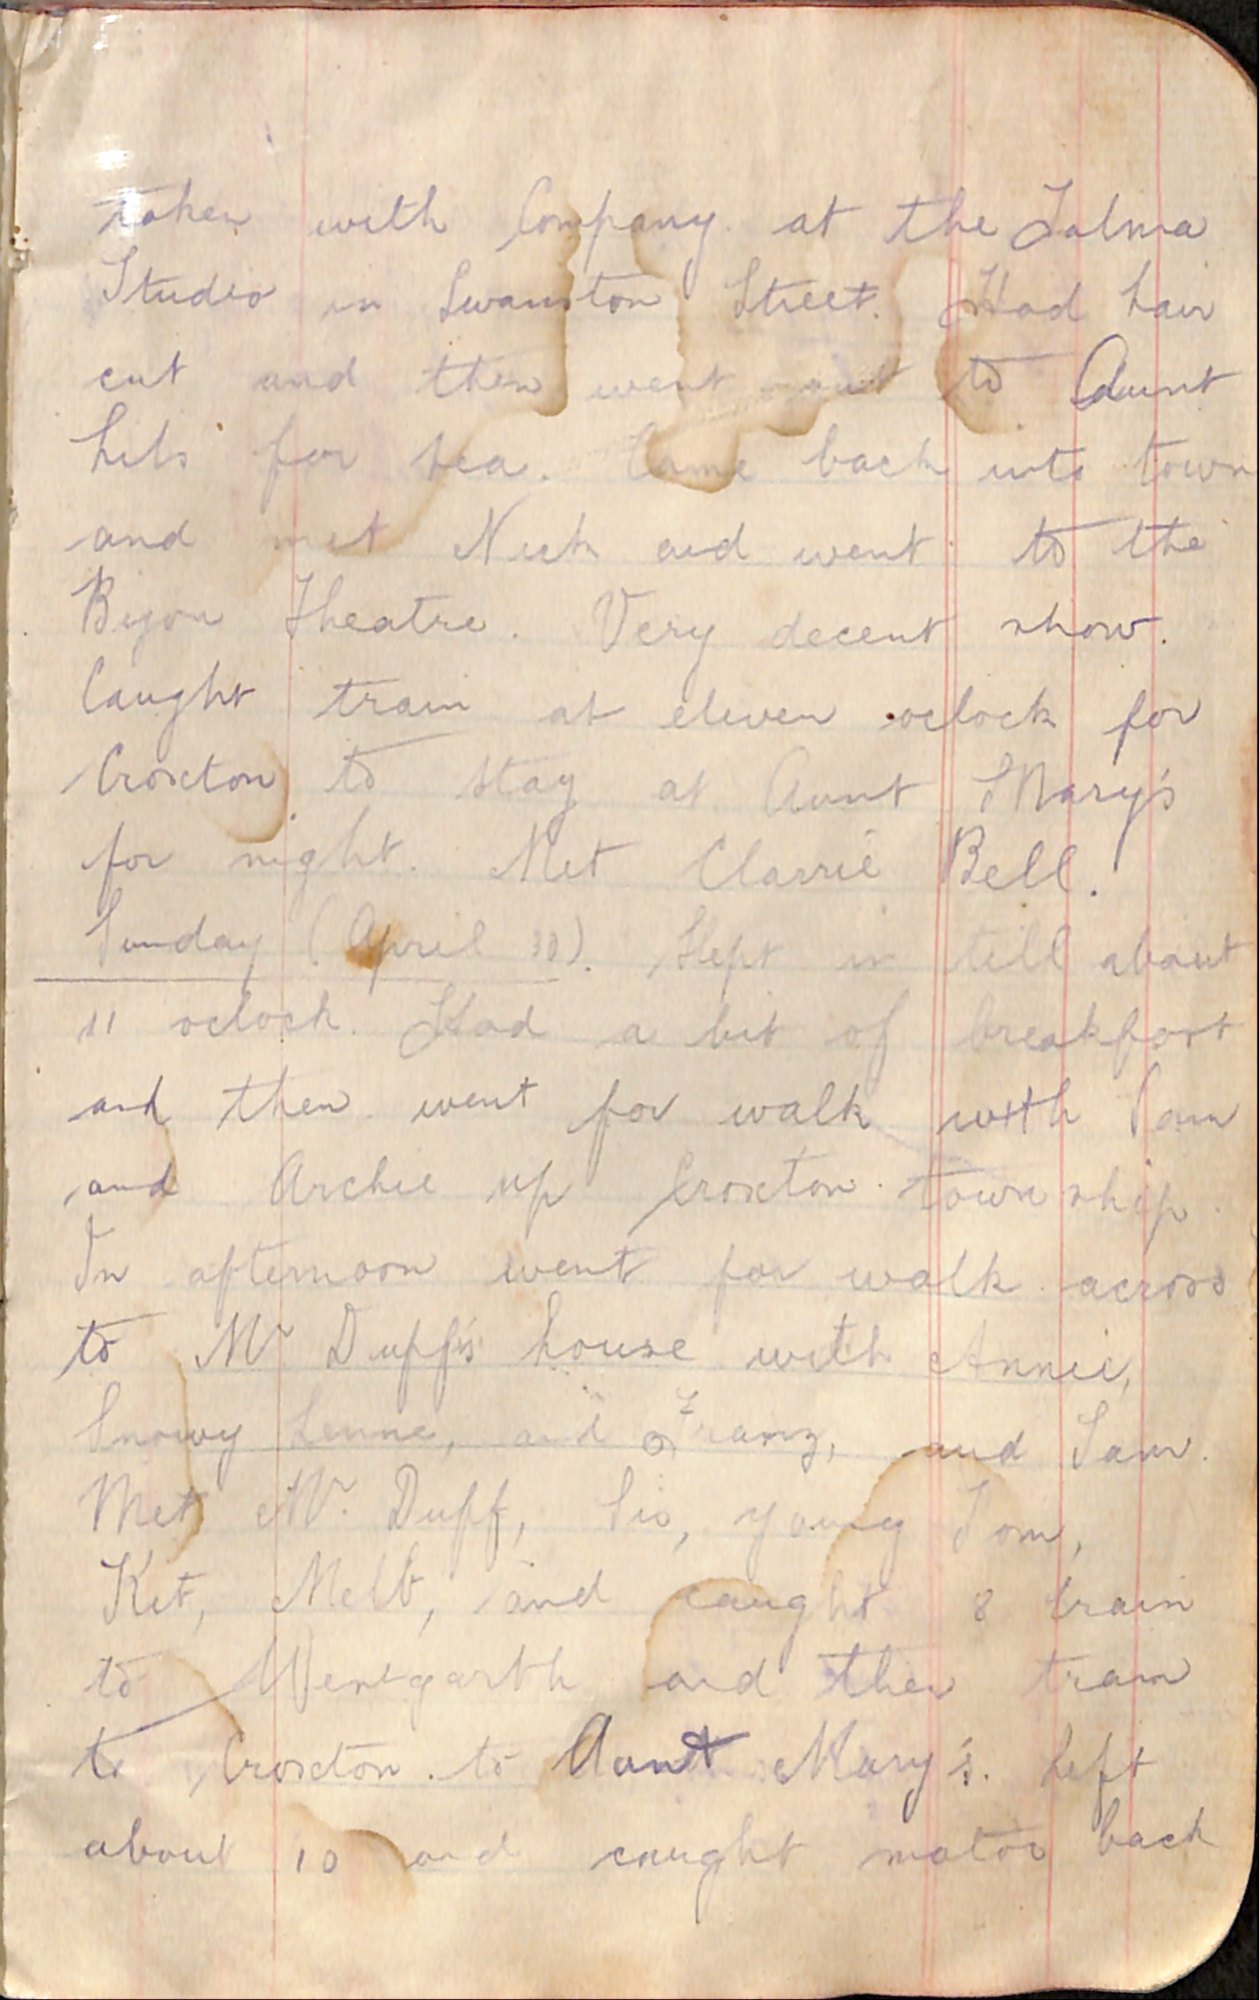 taken with Company. at the Talma
Studio in Swanston Street. Had hair
cut and then went out to Aunt
Lils for tea. Came back into town
and met Nick and went to the
Bijou Theatre. Very decent show.
Caught train at eleven oclock for
Croxton to stay at Aunt Mary's
for night. Met Clarrie Bell.
Sunday (April 30). Slept in till about
11 oclock. Had a bit of breakfast
and then went for walk with Sam
and Archie up Croxton township.
In afternoon went for walk across
to Mr Duff's house with Annie,
Snowy Lenne, and Franz, and Sam.
Met Mr. Duff, Sis, young Tom,
Kit, Melb, and caught 8 train
to Westgarth and then tram
to Croxton to Aunt Mary's. Left
about 10 and caught motor back